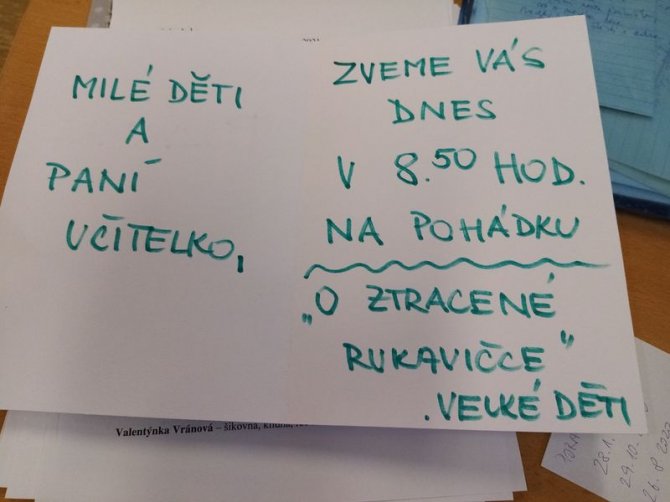 MILÉ DĚTI
A
PANÍ
UČITELKO,
ZVEME VÁS
DNES
V 8.50 HOD.
NA POHÁDKU
„O ZTRACENÉ
RUKAVIČCE"
VELKÉ DĚTI
Valentýnka Vránová – šikovná, klidná,
28.1.
29.10.
26.8 2022